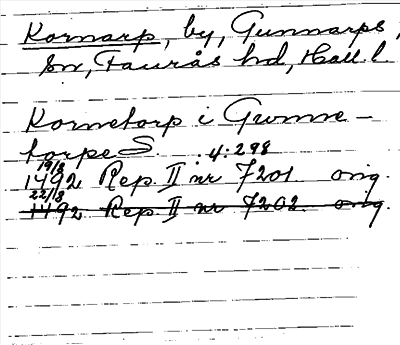 Kornarp, by, Gunnarps,
sn, Faurås hd, Hall. l.
Kornetorp i Gunne-
torpe S. : 4:298
19/8
1492 Rep. II nr 7201 orig.
22/8
1492 Rep. II nr 7202 orig.